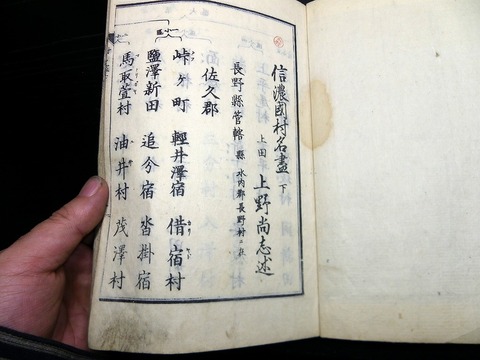 信濃國村名盡 下
上田 上野尚志述
長野縣管轄 縣 水内郡長野村ニ在
佐久郡
峠町 輕井澤宿 借宿村
鹽澤新田 追分宿 沓掛宿
馬取萱村 油井村 茂澤村